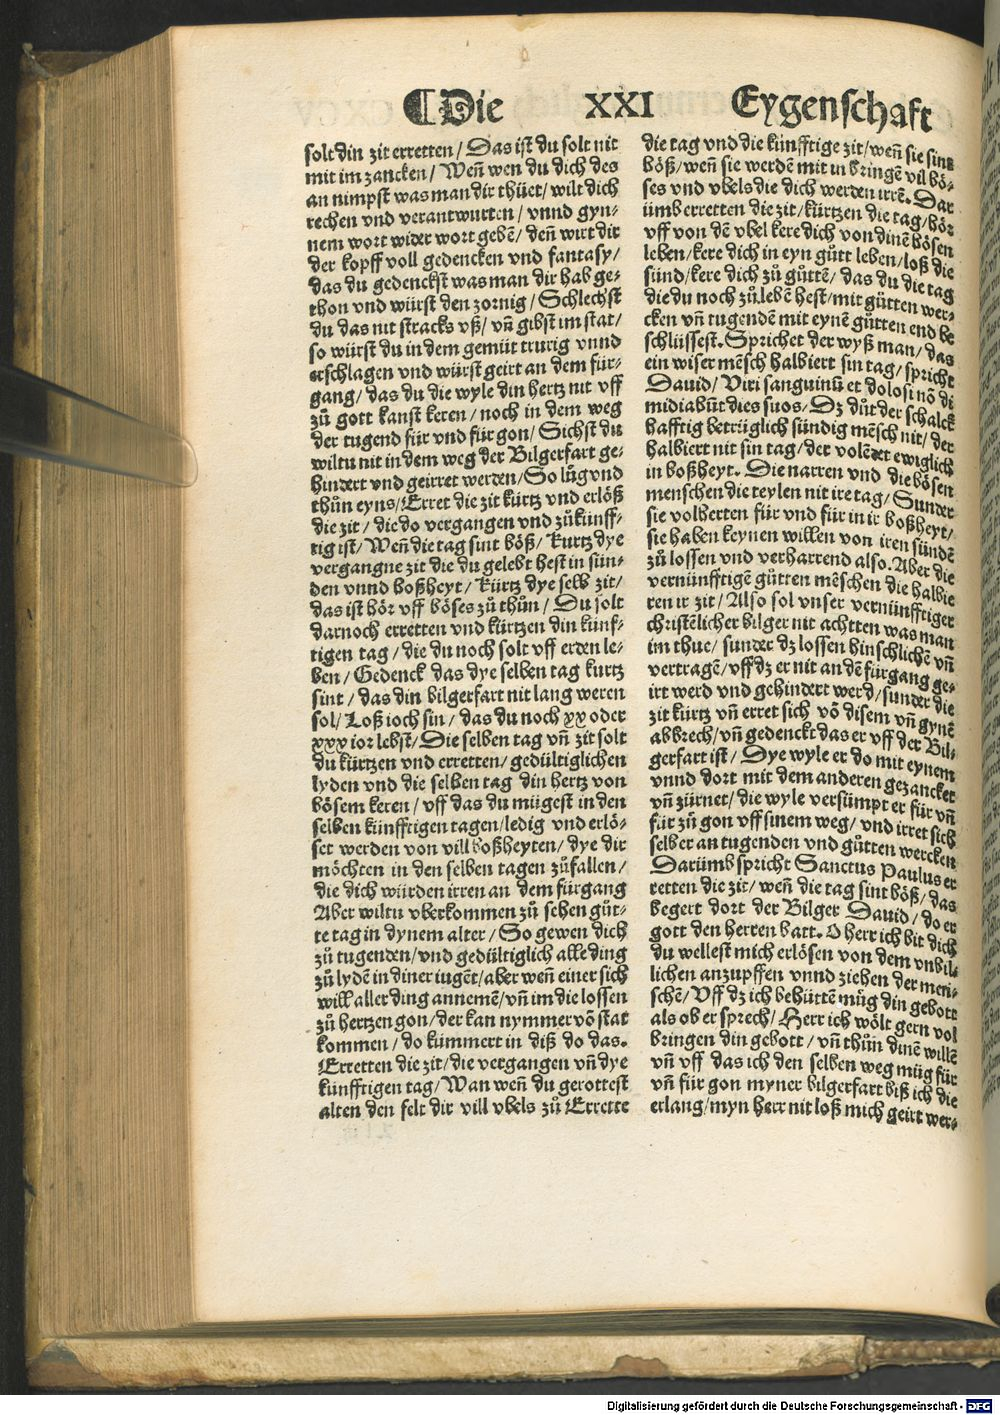 ¶Die XXI Eygenschafft
solt din zit erretten / Das ist du solt nit
mit im zancken / Weñ wen du dich des
an nimpst was man dir thüet / wilt dich
rechen vnd verantwurten / vnnd gyn-
nem wort wider wort gebē / deñ wirt dir
der kopff voll gedencken vnd fantasy /
das du gedenckst was man dir hab ge-
thon vnd würst den zornig / Schlechst
du das nit stracks vß / vñ gibst im stat /
so würst du in dem gemüt trurig vnnd
erschlagen vnd würst geirt an dem für-
gang / das du die wyle din hertz nit vff
zů gott kanst keren / noch in dem weg
der tugend für vnd für gon / Sichst du
wiltu nit in dem weg der Bilgerfart ge-
hindert vnd geirret werden / So lůg vnd
thůn eyns / Erret die zit kürtz vnd erlöß
die zit / die do vergangen vnd zůkünff-
tig ist / Weñ die tag sint böß / kurtz dye
vergangne zit die du gelebt hest in sün-
den vnnd boßheyt / kürtz dye selb zit /
das ist hör vff böses zů thůn / Du solt
darnoch erretten vnd kürtzen din künf-
tigen tag / die du noch solt vff erden le-
ben / Gedenck das dye selben tag kurtz
sint / das din bilgerfart nit lang weren
sol / Loß ioch sin / das du noch xx oder
xxx ior lebst / Die selben tag vñ zit solt
du kürtzen vnd erretten / gedültiglichen
lyden vnd die selben tag din hertz von
bösem keren / vff das du mügest in den
selben künfftigen tagen / ledig vnd erlö-
set werden von vill boßheyten / dye dir
möchten in den selben tagen zůfallen /
die dich würden irren an dem fürgang
Aber wiltu vberkommen zů sehen gůt-
te tag in dynem alter / So gewen dich
zů tugenden / vnd gedültiglich alle ding
zů lydē in diner iugēt / aber weñ einer sich
will aller ding annemē / vñ im die lossen
zů hertzen gon / der kan nymmer vō stat
kommen / do kümmert in diß do das.
Erretten die zit / die vergangen vñ dye
künfftigen tag / Wan weñ du gerottest
alten den felt dir vill vbels zů Errette
die tag vnd die künfftige zit / weñ sie sint
böß / weñ sie werdē mit in bringē vil bö-
ses vnd vbels die dich werden irrē. Dar
ümb erretten die zit / kürtzen die tag / hör
vff von dē vbel kere dich von dinē bösen
leben / kere dich in eyn gůtt leben / loß die
sünd / kere dich zů gůttē / das du die tag
die du noch zů lebē hest / mit gůtten wer-
cken vñ tugendē mit eynē gůtten end be
schlüssest. Sprichet der wyß man / das
ein wiser mēsch halbiert sin tag / spricht
Dauid / Viri sanguinū et dolosi nō di
midiabūt dies suos / Dz důt der schalck
hafftig betrüglich sündig mēsch nit / der
halbiert nit sin tag / der volēdet ewiglich
in boßheyt. Die narren vnd die bösen
menschen die teylen nit ire tag / Sunder
sie volherten für vnd für in ir boßheyt /
sie haben keynen willen von iren sündē
zů lossen vnd verharrend also. Aber die
vernünfftigē gůtten mēschen die halbie
ren ir zit / Also sol vnser vernünfftiger
christēlicher bilger nit achtten was man
im thue / sunder dz lossen hin schlichē vñ
vertragē / vff dz er nit an dē fürgang ge-
irt werd vnd gehindert werd / sunder die
zit kürtz vñ erret sich vō disem vñ gynē
abbrech / vñ gedenckt das er vff der Bil-
gerfart ist / Dye wyle er do mit eynem
vnnd dort mit dem anderen gezancket
vñ zürnet / die wyle versümpt er für vñ
für zů gon vff sinem weg / vnd irret sich
selber an tugenden vnd gůtten wercken
Darümb spricht Sanctus Paulus er
retten die zit / weñ die tag sint böß / das
begert dort der Bilger Dauid / do er
gott den herren batt. O herr ich bit dich
du wellest mich erlösen von dem vnbil-
lichen anzupffen vnnd ziehen der men-
schē / Vff dz ich behüttē müg din gebott
als ob er sprech / Herr ich wölt gern vol
bringen din gebott / vñ thůn dinē willē
vñ vff das ich den selben weg müg für
vñ für gon myner bilgerfart biß ich die
erlang / myn herr nit loß mich geirt wer-
Digitalisierung gefördert durch die Deutsche Forschungsgemeinschaft - DFG